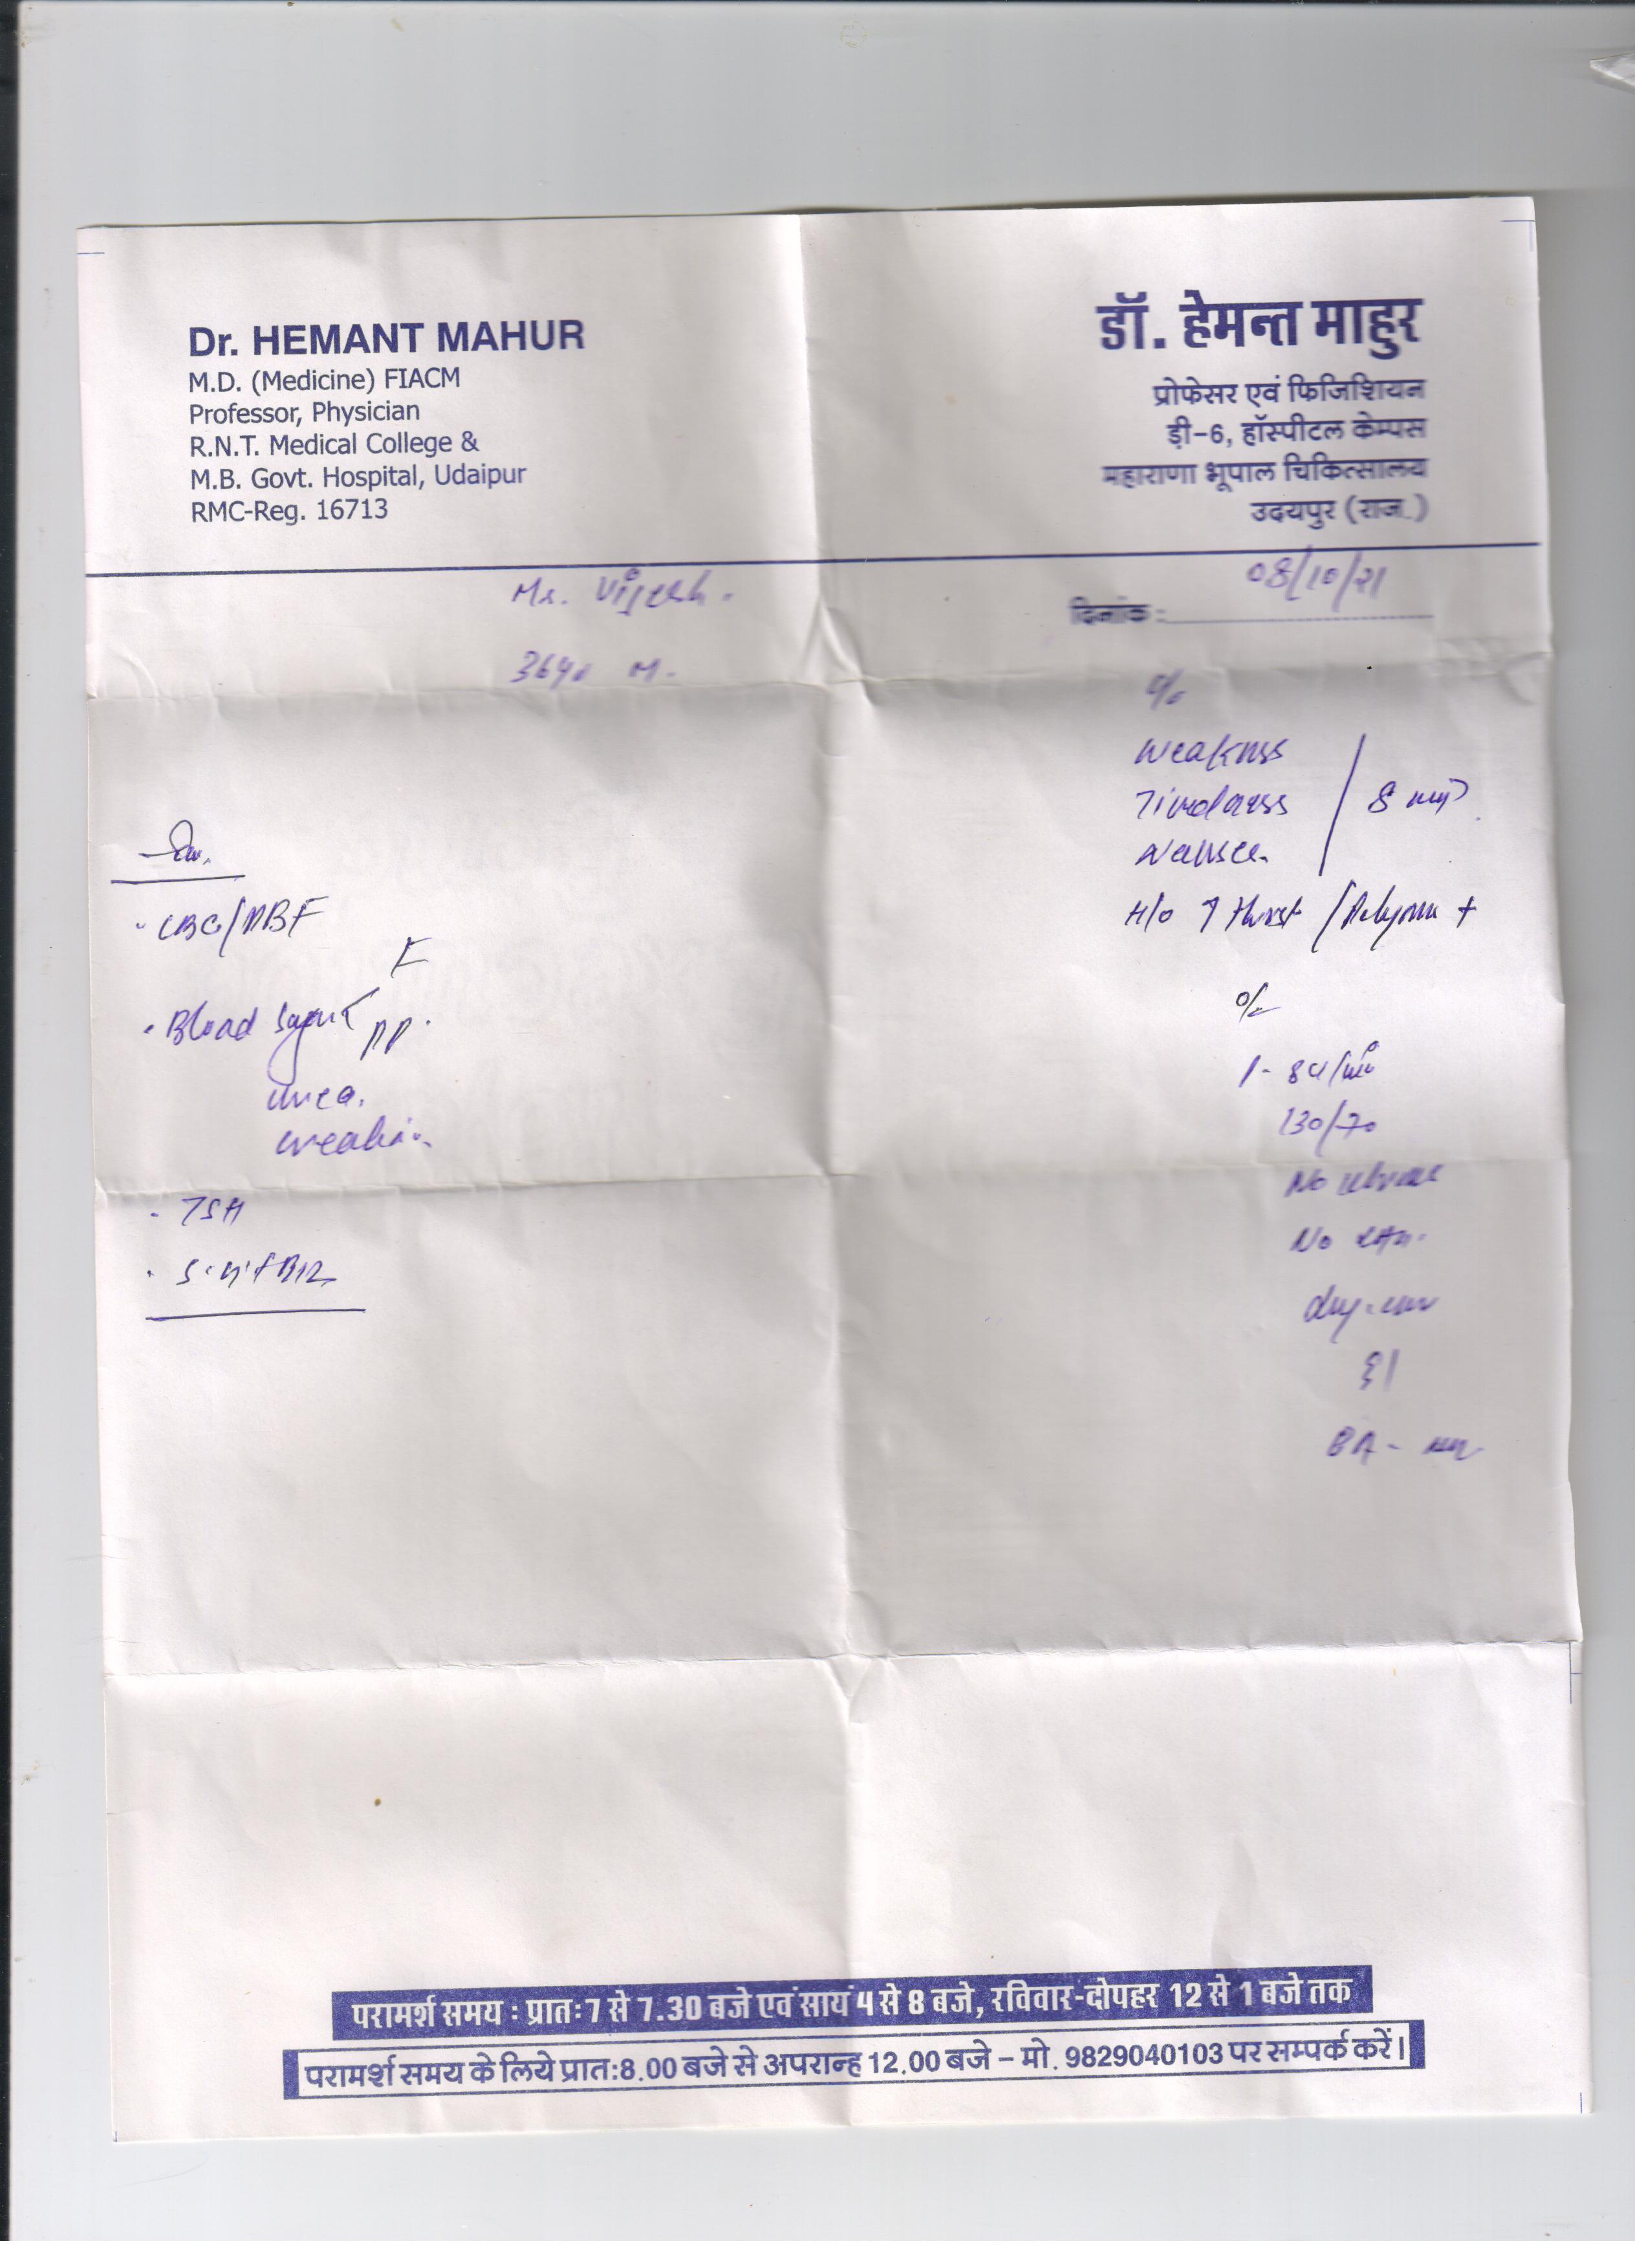 Dr. HEMANT MAHUR
M.D. (Medicine) FIACM
Professor, Physician
R.N.T. Medical College &
M.B. Govt. Hospital, Udaipur
RMC-Reg. 16713
डॉ. हेमन्त माहुर
प्रोफेसर एवं फिजिशियन
ड़ी-6, हॉस्पीटल केम्पस
महाराणा भूपाल चिकित्सालय
उदयपुर (राज.)
दिनांक : 08/10/21
Mr.
M.
c/o
Weakness
Tiredness
Nausea
H/o ↑ thirst /
o/e
130/70
No
No
BA -
CBC/PBF
Blood sugar F
PP.
urea.
creatinine
TSH
S. vit B12
परामर्श समय : प्रातः 7 से 7.30 बजे एवं सायं 4 से 8 बजे, रविवार-दोपहर 12 से 1 बजे तक
परामर्श समय के लिये प्रात:8.00 बजे से अपरान्ह 12.00 बजे – मो. 9829040103 पर सम्पर्क करें।